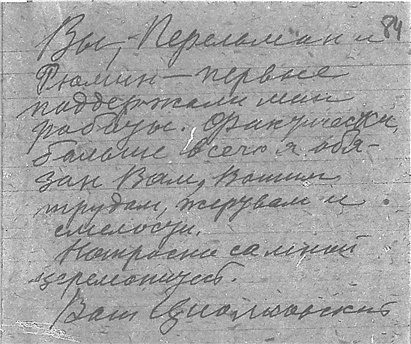 84
Вы, Перельман и
Рюмин — первые
поддержали мои
работы. Фактически,
больше всего я обя-
зан Вам, Вашим
трудам, жертвам и
смелости.
Напрасно со мной
церемонитесь.
Ваш Циолковский